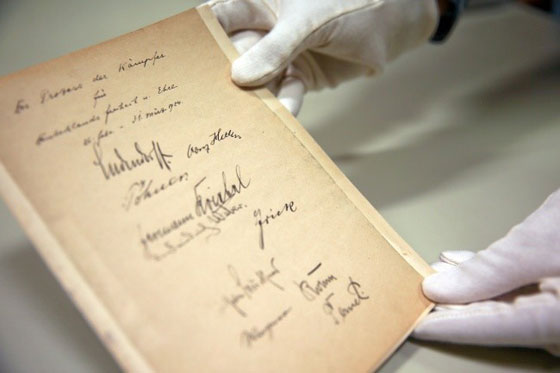 Der Prozess der Kämpfer
für
Deutschlands Freiheit u. Ehre
26. Febr. - 31. März 1924.
Ludendorff. Adolf Hitler
Pöhner
Hermann Kriebel
Frick
Wagner Röhm
Pernet